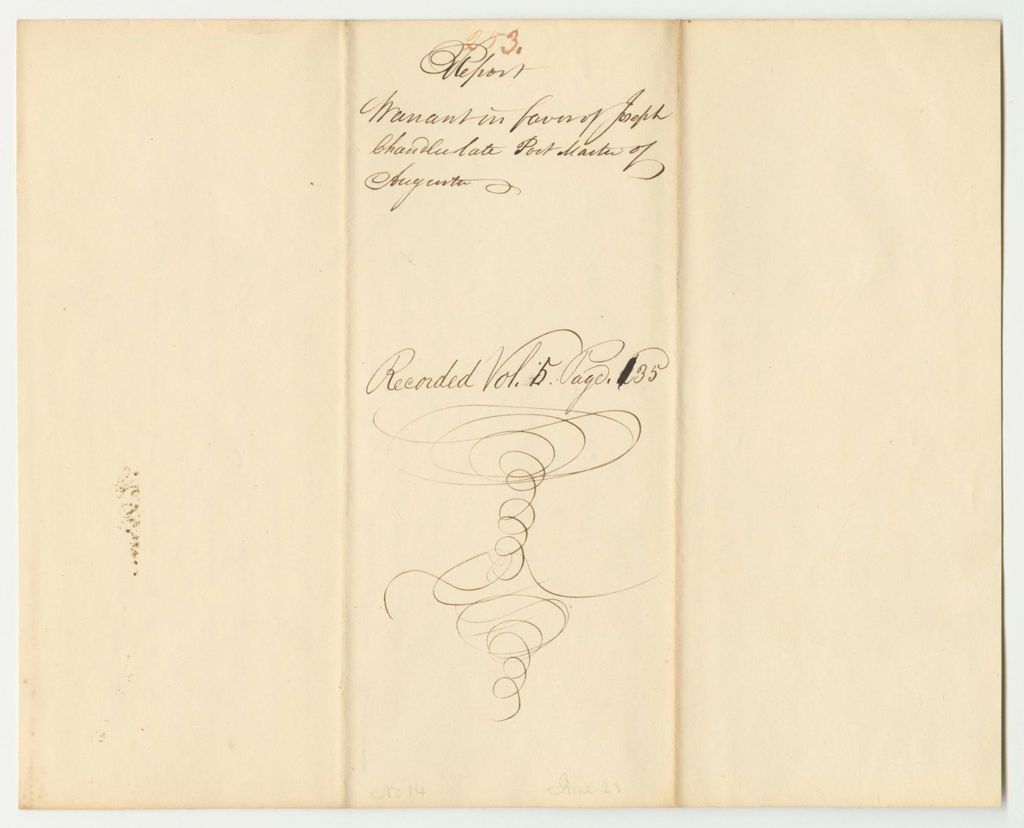 253.
Report
Warrant in favor of Joseph
Chandler late Post Master of
Augusta
Recorded Vol. 5. Page. 135
No 14 June 23